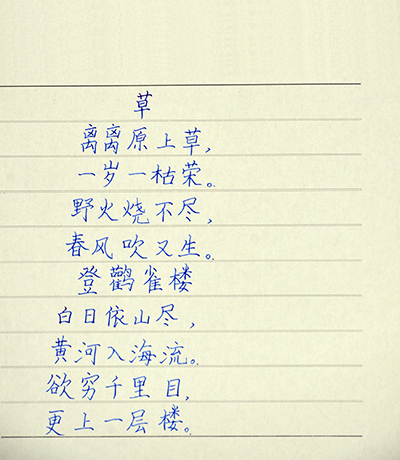 草
离离原上草,
一岁一枯荣。
野火烧不尽,
春风吹又生。
登鹳雀楼
白日依山尽,
黄河入海流。
欲穷千里目,
更上一层楼。